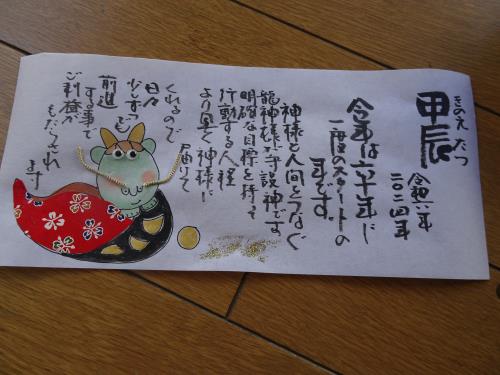 きのえ たつ
甲辰
令和六年
二〇二四年
今年は六十年に
一度のスタートの
年です。
神様と人間をつなぐ
龍神様が守護神です
明確な目標を持って
行動する人程
より早く神様に
届けて
くれるので
日々
少しずつでも
前進
する事で
ご利益が
もたらされ
ます